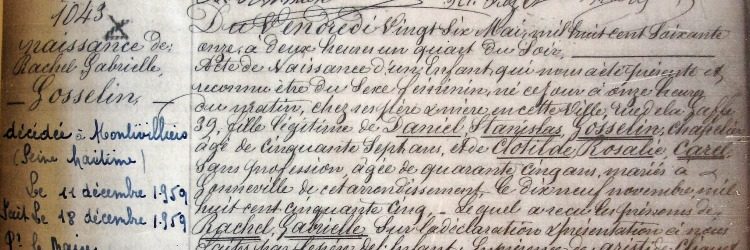 1043
naissance de
Rachel Gabrielle
Gosselin,
décédée à Montivilliers
(Seine Maritime)
Le 11 décembre 1959
Le 18 décembre 1959
Du Vendredi Vingt Six Mai, mil huit cent Soixante
onze, à deux heures un quart du Soir,
Acte de Naissance d'un Enfant, qui nous a été présenté et
reconnu être du Sexe féminin, né ce jour à onze heures
du matin, chez ses père & mère en cette Ville, rue de la
39, fille légitime de Daniel, Stanislas, Gosselin, chapelier
âgé de cinquante Sept ans, et de Clotilde, Rosalie Carel
Sans profession, âgée de quarante cinq ans, mariés à
de cet arrondissement, le dix neuf novembre mil
huit cent cinquante cinq, Lequel a reçu les prénoms de
Rachel, Gabrielle, Sur la déclaration & présentation à nous
par le père de l'Enfant